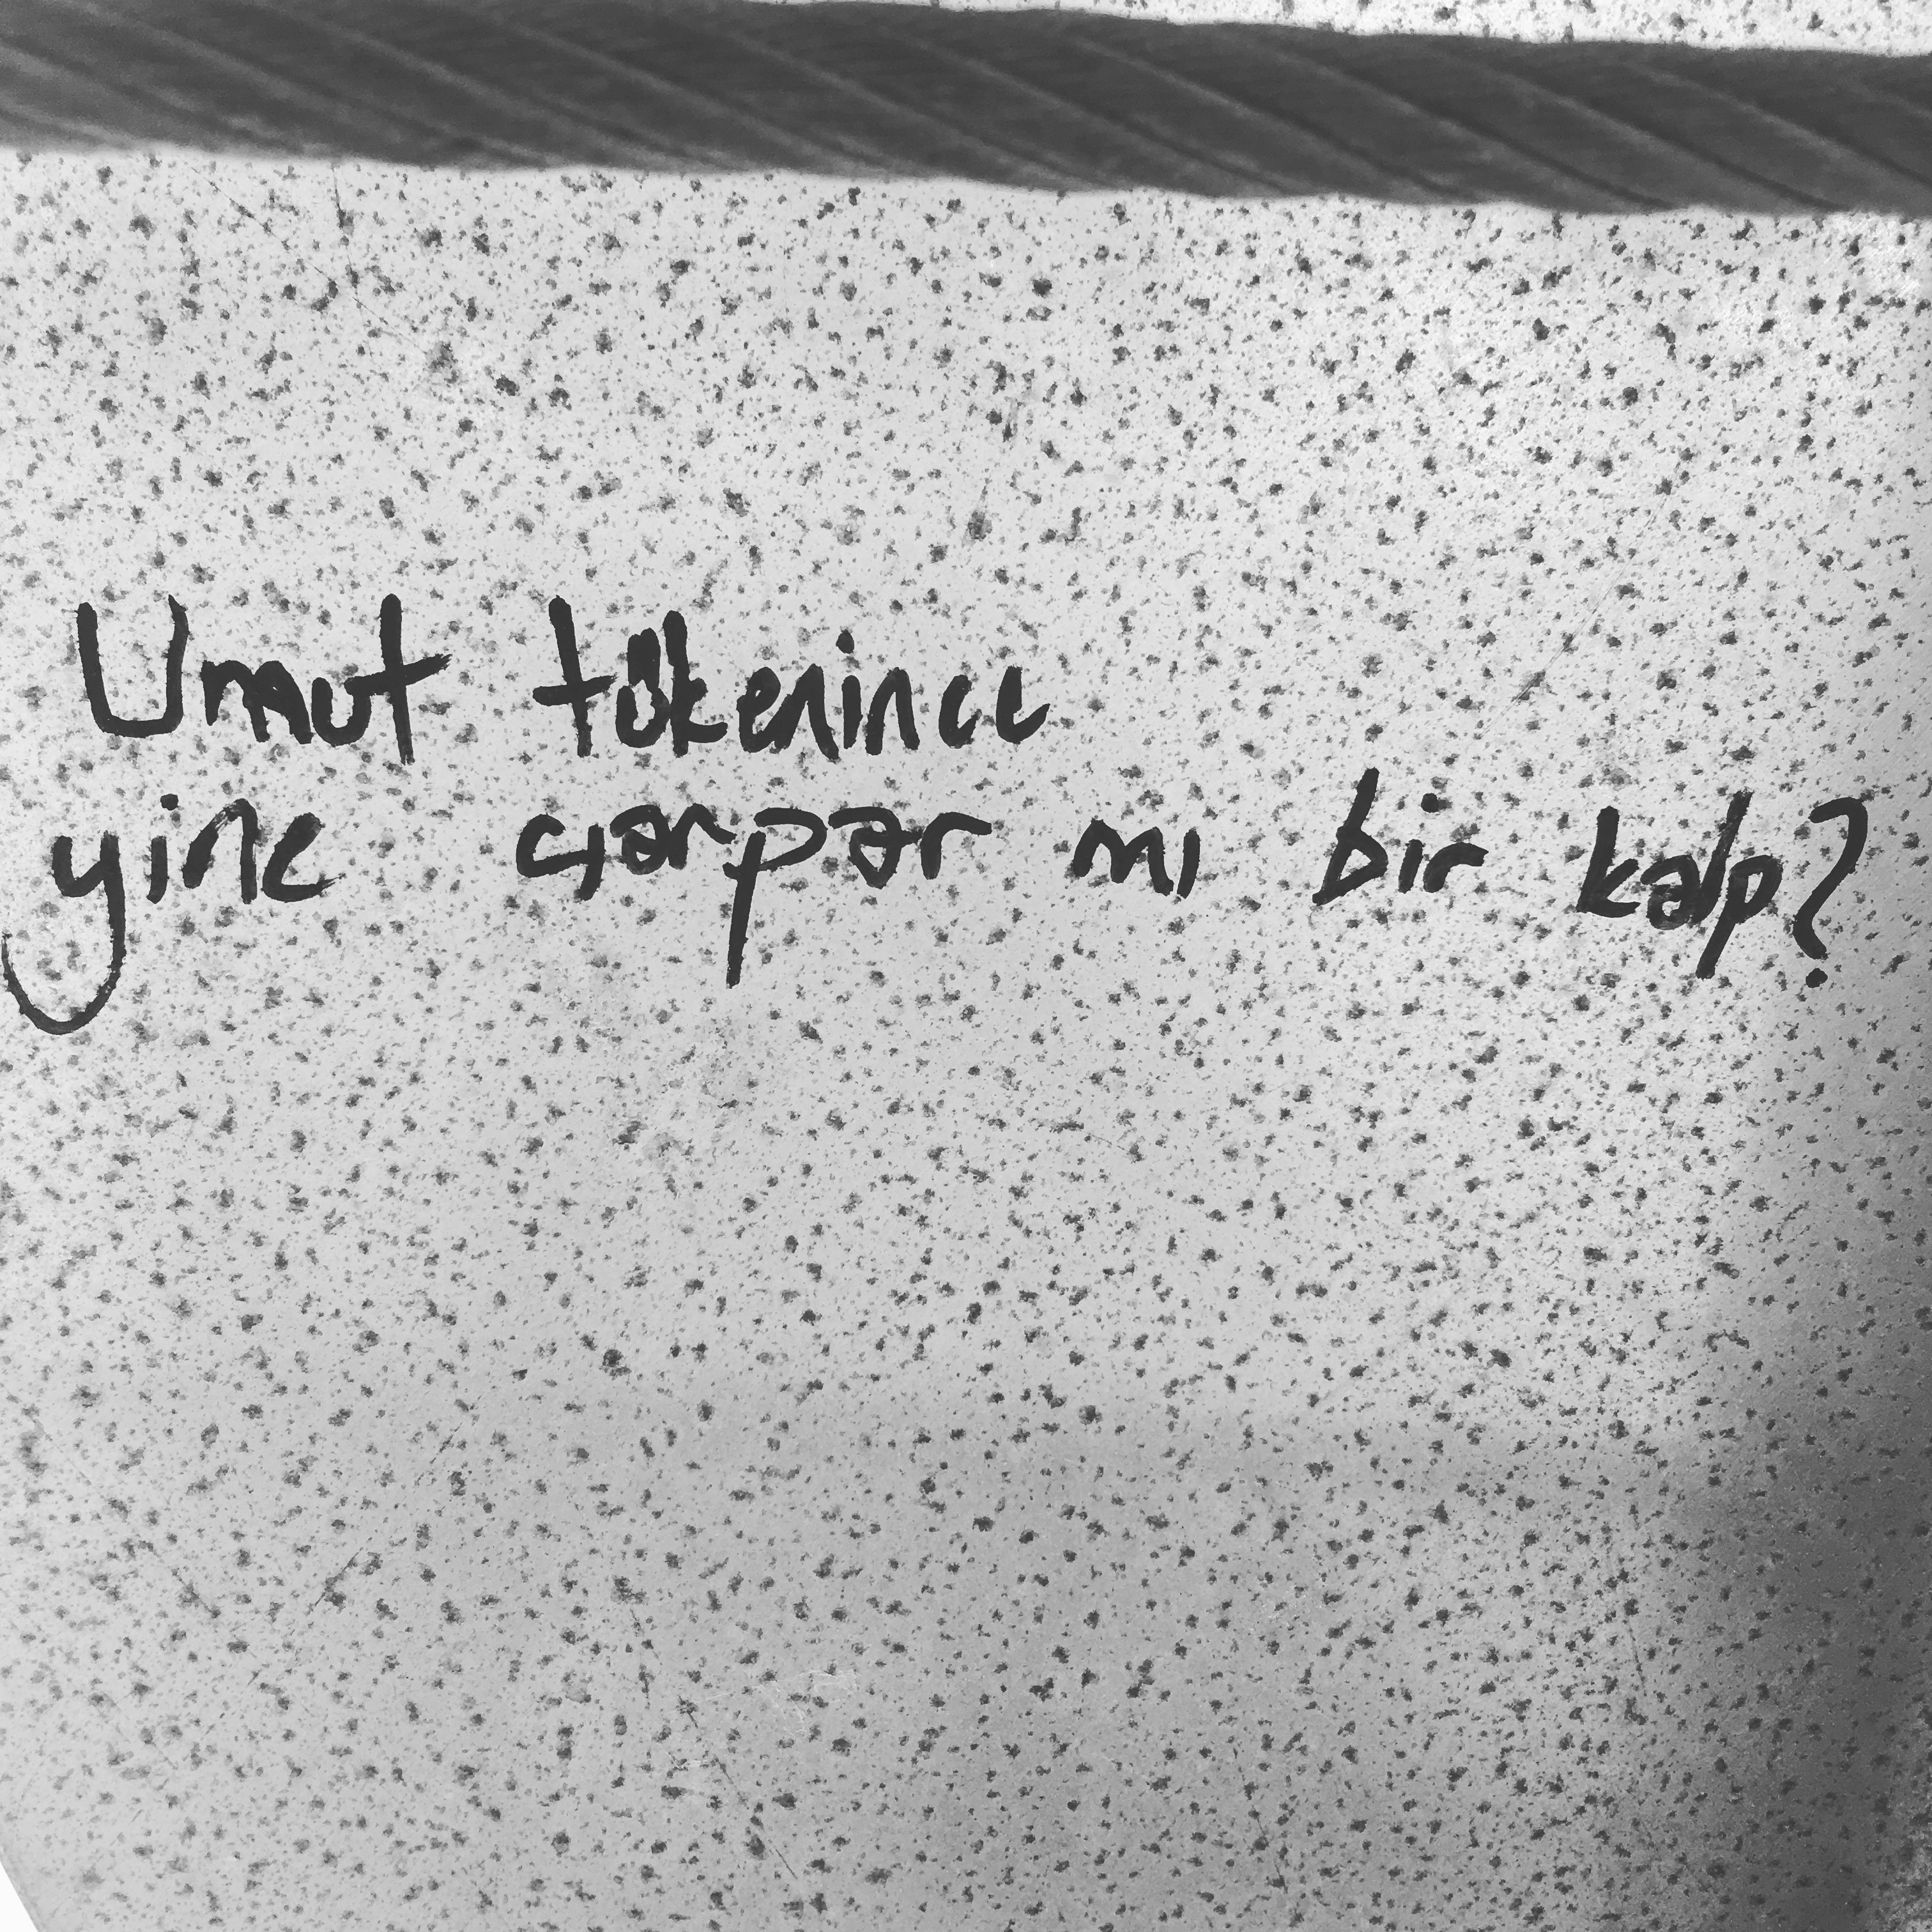 Umut tükenince
yine çarpar mı bir kalp?